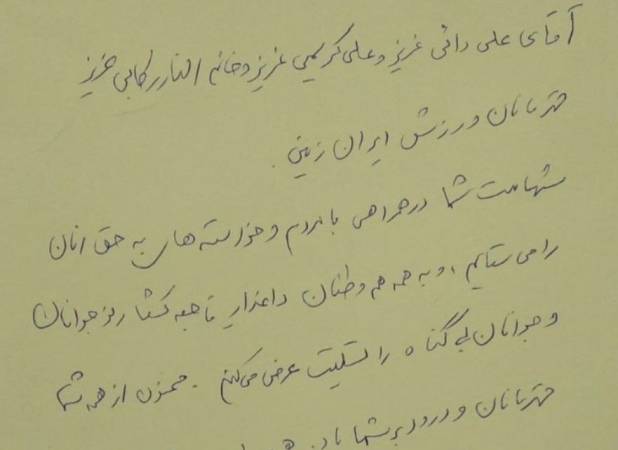 آقای علی دائی عزیز و علی کریمی عزیز و خانم الناز رکابی عزیز
قهرمانان ورزش ایران زمین .
شهامت شما در همراهی با مردم و خواسته های به حق آنان
را می ستایم ، و به همه هم وطنان داغدار فاجعه کشتار نوجوانان
و جوانان بی گناه را تسلیت عرض می کنم . ممنون از همه شما
قهرمانان و درود بر شما باد